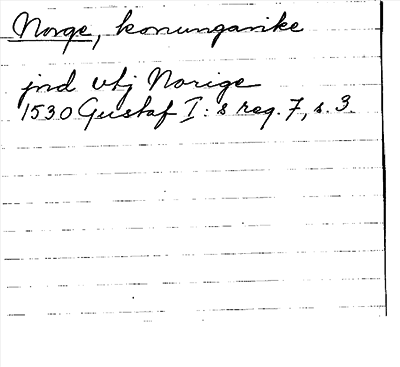 Norge, konungarike
jnd vtj Norige
1530 Gustaf I:s reg. 7, s. 3.